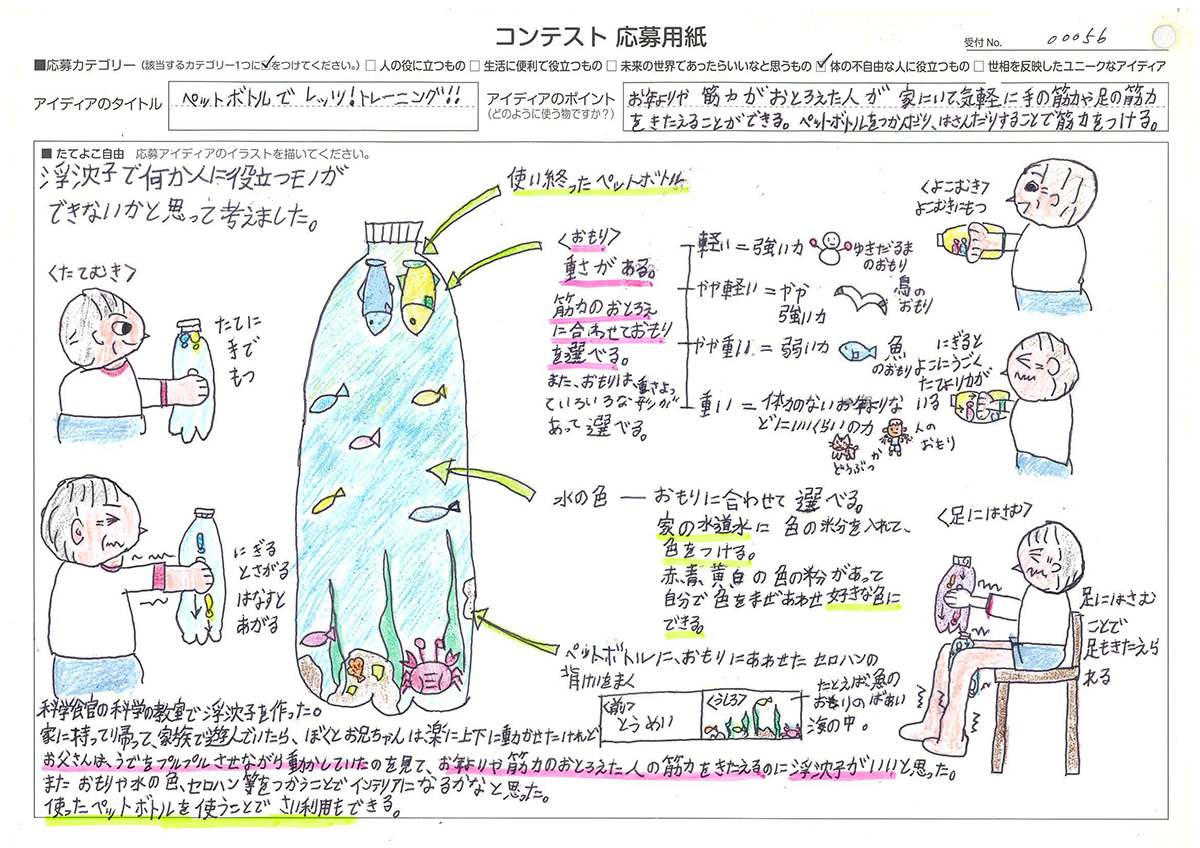 コンテスト 応募用紙
受付 No. 00056
■応募カテゴリー（該当するカテゴリー1つに☑をつけてください。）□ 人の役に立つもの □ 生活に便利で役立つもの □ 未来の世界であったらいいなと思うもの ☑ 体の不自由な人に役立つもの □ 世相を反映したユニークなアイディア
アイディアのタイトル
ペットボトルで レッツ！トレーニング！！
アイディアのポイント
（どのように使う物ですか？）
お年よりや 筋力がおとろえた人が 家にいて、気軽に手の筋力や足の筋力
をきたえることができる。ペットボトルをつかんだり、はさんだりすることで筋力をつける。
■ たてよこ自由 応募アイディアのイラストを描いてください。
浮沈子で何か人に役立つモノが
できないかと思って考えました。
使い終ったペットボトル
＜たてむき＞
たてに
手で
もつ
にぎる
とさがる
はなすと
あがる
＜おもり＞
重さがある。
筋力のおとろえ
に合わせておもり
を選べる。
また、おもりは、重さよっ
ていろいろな形が
あって選べる。
軽い＝強い力
ゆきだるま
のおもり
やや軽い＝やや
強い力
鳥の
おもり
やや重い＝弱い力
魚
のおもり
重い＝体力のないお年よりな
どにいいくらいの力
どうぶつ
か
人の
おもり
＜よこむき＞
よこむきにもつ
にぎると
よこにうごく
たてより力が
いる
水の色 ― おもりに合わせて 選べる。
家の水道水に 色の粉を入れて、
色をつける。
赤、青、黄、白の色の粉があって
自分で色をまぜあわせ好きな色に
できる。
＜足にはさむ＞
足にはさむ
ことで
足もきたえら
れる
ペットボトルに、おもりにあわせたセロハンの
背けいをまく
＜前＞
とうめい
＜うしろ＞
たとえば魚の
おもりのばあい
海の中。
科学食官の科学の教室で浮沈子を作った。
家に持って帰って、家族で遊んでいたら、ぼくとお兄ちゃんは楽に上下に動かせたけれど
お父さんは、うでをプルプルさせながら動かしていたのを見て、お年よりや筋力のおとろえた人の筋力をきたえるのに浮沈子がいいと思った。
また おもりや水の色、セロハン等をつかうことでインテリアになるかなと思った。
使ったペットボトルを使うことで さい利用もできる。